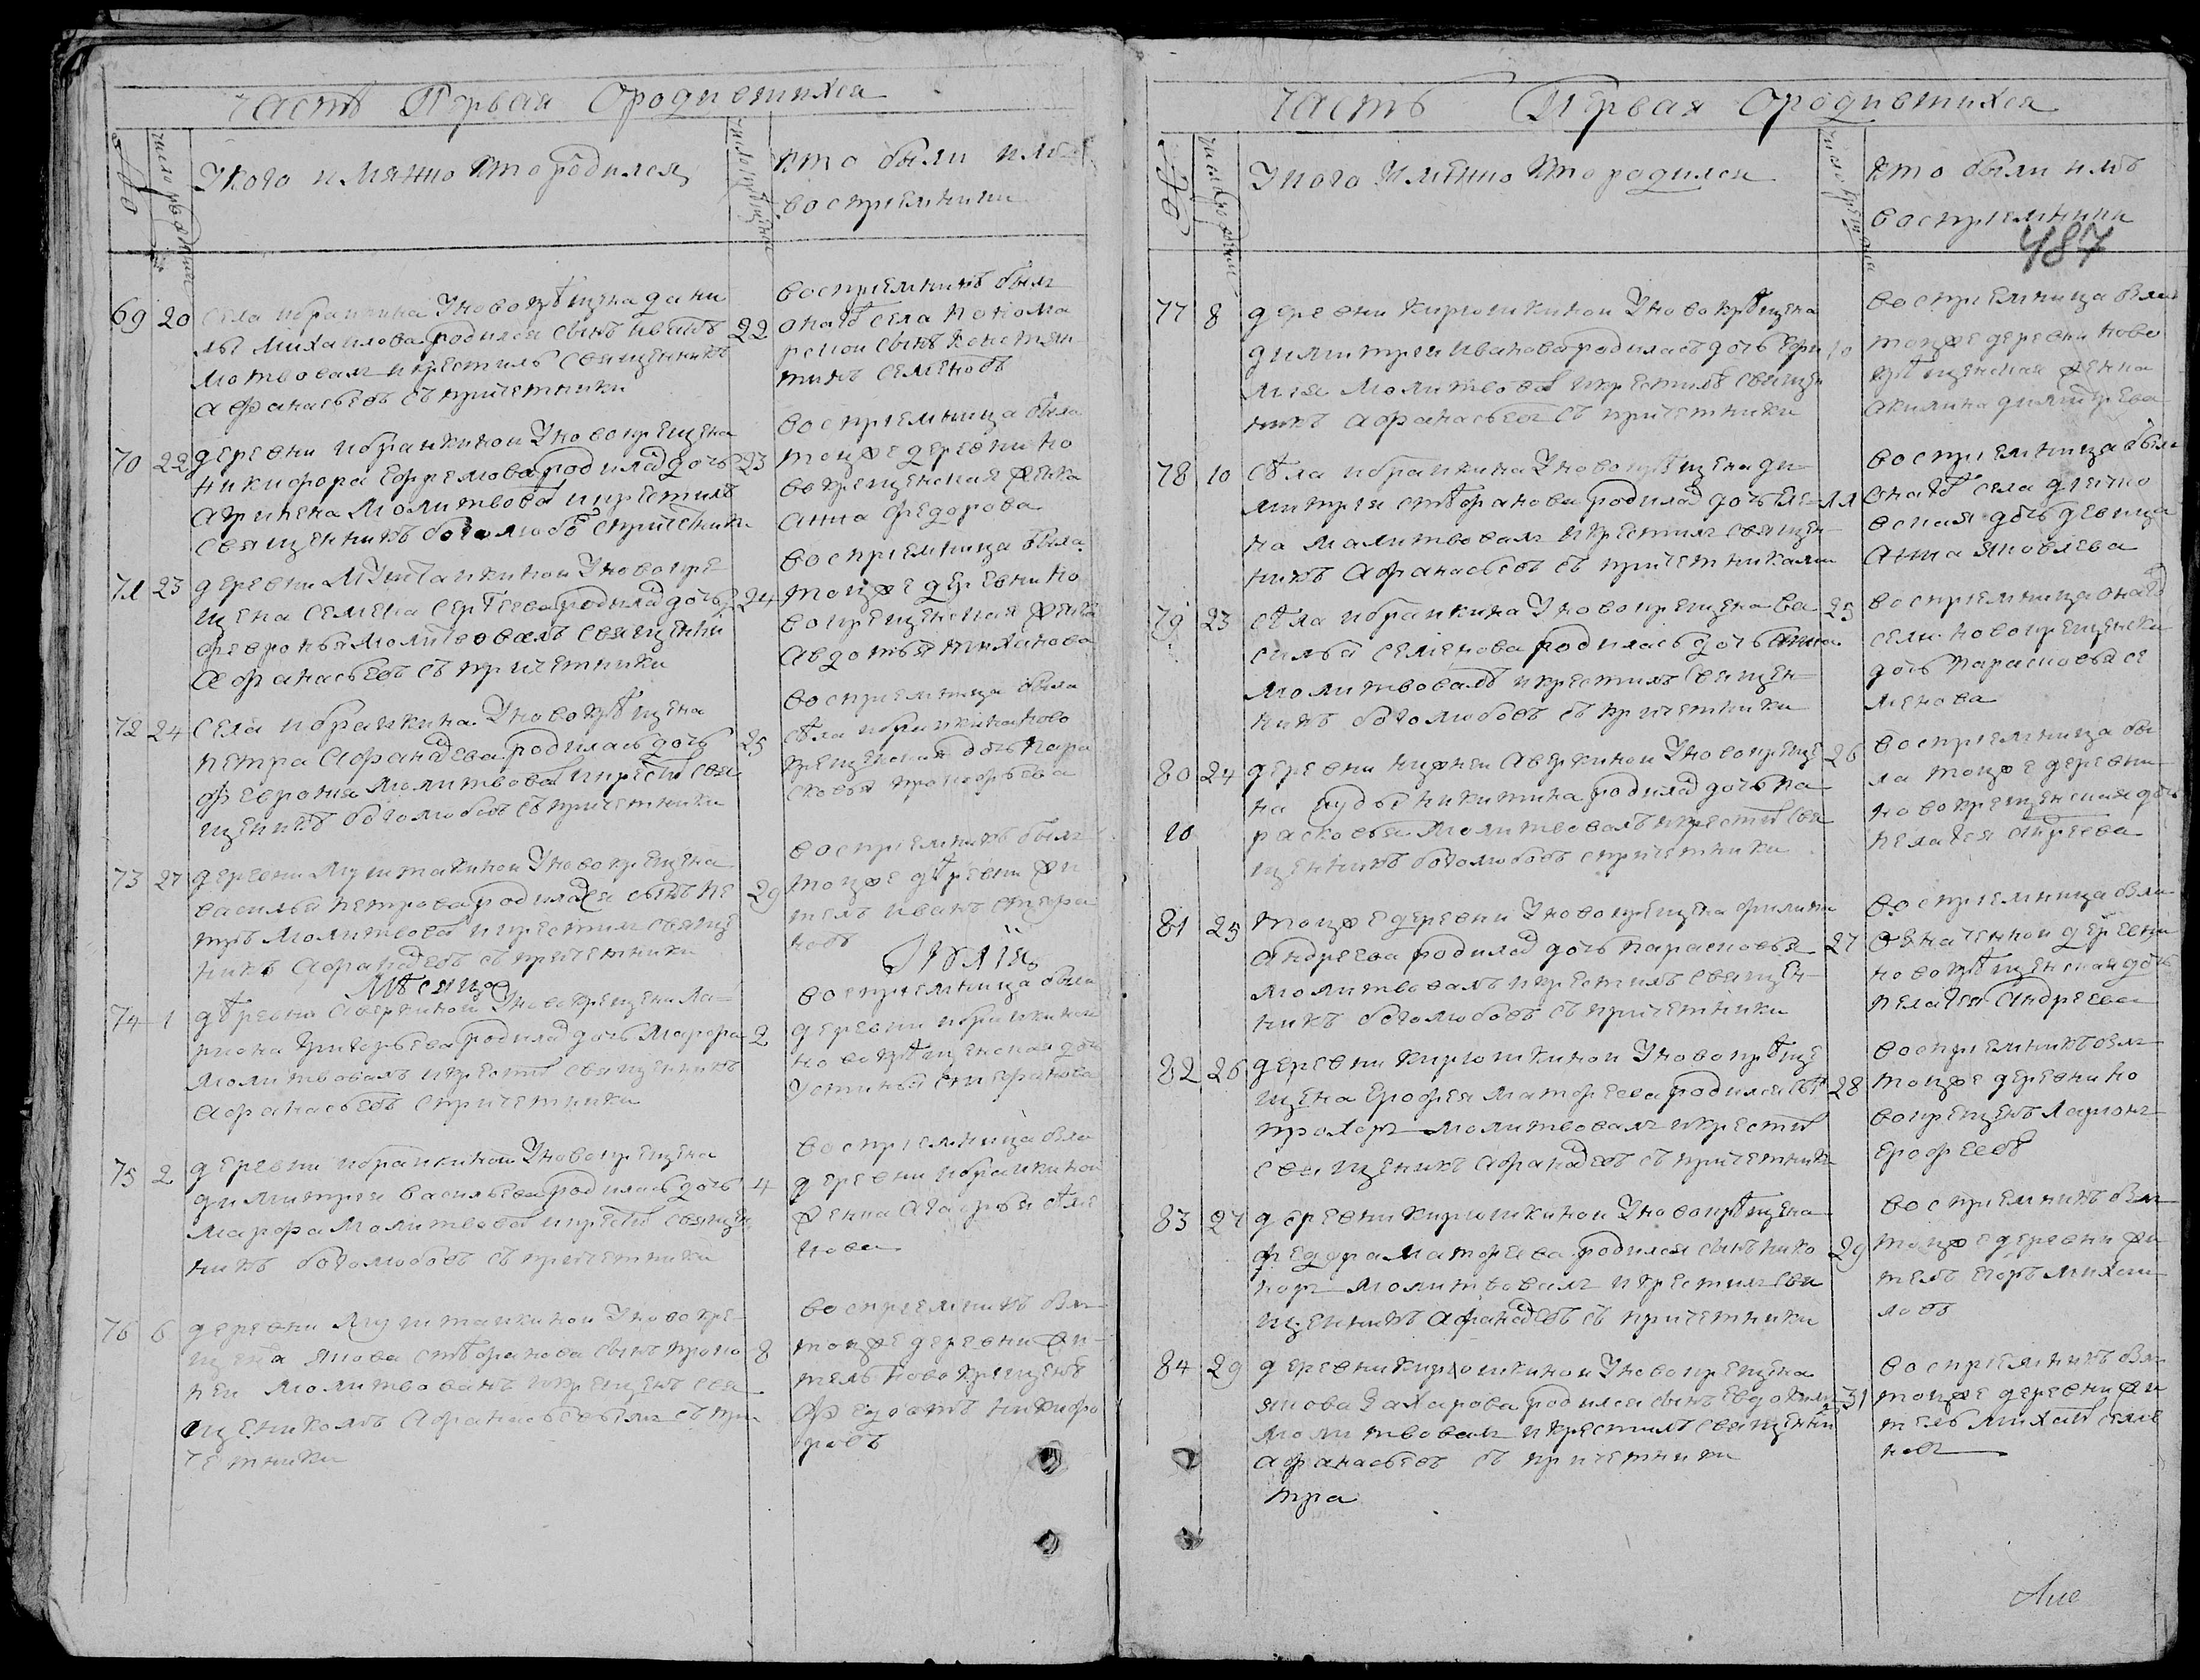 часть Первая Ородившихся
№
число рождения
Укого имянно кто родился
число крещения
кто были или
восприемники
69 20 села ибраикина Уновокрѣщена дани
лы михаилова родился сынъ иванъ 22
молитвовалъ и крестилъ священникъ
афанасьевъ съ причетники
восприемникъ былъ
онагѡ села
сынъ констян
тинъ семеновъ
70 22 деревни ибраикинои Уновокрещена
никифора ефремова родилась дочь 23
агрипена молитвовалъ и крестилъ
священникъ боголюбовъ спричетники
восприемница была
тоиже деревни но
вокрещенская женка
анна федорова
71 23 деревни Муштаикинои Уновокре
щена семена сергеева родилась дочь 24
февронья молитвовалъ священни
афанасьевъ съ причетники
восприемница была
тоиже деревни но
вокрещенская женка
авдотья тиханова
72 24 села ибраикина Уновокрѣщена
петра афанасьева родилась дочь 25
феврония молитвовалъ и крести свя
щеникъ боголюбовъ съ причетники
восприемница была
сѣла ибраикина ново
крещенская дочь пара
сковья прокофьева
73 27 деревни Муштаикинои Уновокрещена
василья петрова родился сынъ пе 29
тръ молитвовалъ и крестилъ свяще
никъ афанасьевъ съ причетники
восприемникъ былъ
тоиже дѣревни жи
тель иванъ стефа
новъ
Мѣсяцъ Июлїи
74 1 дѣревни Аверкинои Уновокрещена ла-
риона григорьева родилась дочь Марфа 2
молитвовалъ и крести священникъ
афанасьевъ спричетники
восприемница была
деревни ибраикинои
новокрѣщенская дочь
устинья стефанова
75 2 деревни ибраикинои Уновокрещена
димитрея васильева родилась дочь 4
марфа молитвовалъ и крести священ
никъ боголюбовъ съ причетники
восприемница была
деревни ибраикинои
женка агафья сѣме
нова
76 6 деревни Муштаикинои Уновокре-
щена якова стѣфанова сынъ проко 8
пеи молитвованъ и крещенъ свя
щеникомъ афанасьевымъ съ при-
четники
восприемникъ былъ
тоиже деревни жи-
тель новокрещенъ
Федотъ никифо
ровъ
часть Первая Ородившихся
№
число рождения
Укого имѣнно кто родился
число крещения
кто были или
восприемники
487
77 8 деревни кирюшкинои Уновокрѣщена
димитреи иванова родилась дочь ефи 10
мия молитвовалъ и крестилъ священ
никъ афанасьевъ съ причетники
восприемница была
тоиже деревни ново
крѣщенская женка
акилина димитрева
78 10 сѣла ибраикина Уновокрѣщена ди-
митрея стѣфанова родилась дочь еле- 11
на молитвовалъ и крестилъ священ-
никъ афанасьевъ съ причетниками
восприемница была
онагѡ села
вская дочь девица
анна яковлева
79 23 сѣла ибраикина Уновокрещена ва 25
силья семенова родилась дочь анна
молитвовалъ и крестилъ священ-
никъ боголюбовъ съ причетники
восприемница онагѡ
села новокрещенска
дочь парасковья се
менова
80 24 деревни нижнеи Аверкинои Уновокреще 26
на никитина родилась дочь па
10 расковья молитвовалъ и крести свя
щенникъ боголюбовъ спричетники
восприемница бы
ла тоиже деревни
новокрещенская дочь
пелагея андреева
81 25 тоиже деревни Уновокрещена филипа
андреева родилась дочь парасковья 27
молитвовалъ и крестилъ священ-
никъ боголюбовъ съ причетники
восприемница была
означеннои дѣревни
новокрѣщенская дочь
пелагея Андреева
82 26 деревни кирюшкинои Уновокрѣще
щена ерофея матфеева родился сын 28
прохоръ молитвовалъ и крести
священикъ афанасьевъ съ причетники
восприемникъ былъ
тоиже деревни но
вокрещенъ ларионъ
ерофеевъ
83 27 деревни кирюшкинои Уновокрѣщена
федора матфеева родился сынъ нико 29
норъ молитвовалъ и крестилъ свя
щенникъ афанасьевъ съ причетники
восприемникъ былъ
тоиже деревни жи
тель егоръ михаи
ловъ
84 29 деревни кирюшкинои Уновокрещена
якова Захарова родился сынъ евдокимъ 31
молитвовалъ и крестилъ священни
афанасьевъ съ причетники
тра
восприемникъ былъ
тоиже деревни жи
тель михаилъ семе
новъ